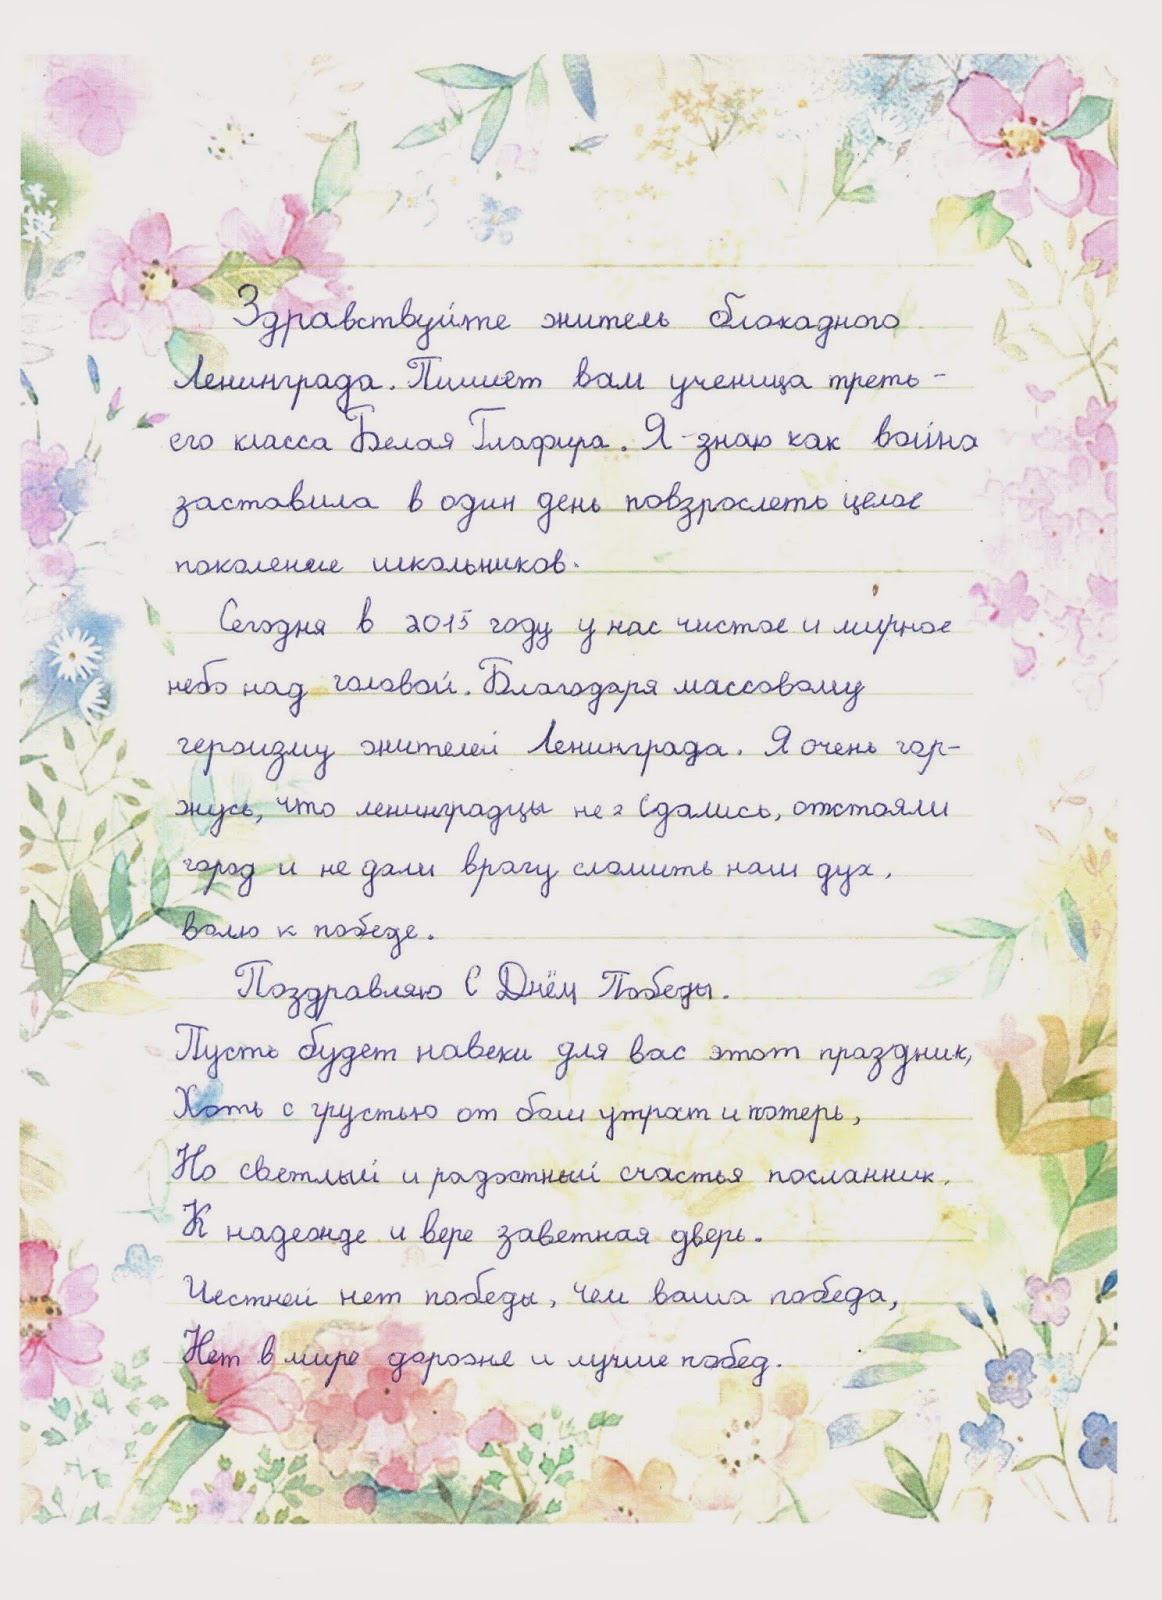 Здравствуйте житель блокадного
Ленинграда. Пишет вам ученица треть-
его класса Белая Глафира. Я знаю как война
заставила в один день повзрослеть целое
поколение школьников.
Сегодня в 2015 году у нас чистое и мирное
небо над головой. Благодаря массовому
героизму жителей Ленинграда. Я очень гор-
жусь, что ленинградцы не сдались, отстояли
город и не дали врагу сломить наш дух,
волю к победе.
Поздравляю С Днём Победы.
Пусть будет навеки для вас этот праздник,
Хоть с грустью от боли утрат и потерь,
Но светлый и радостный счастья посланник,
К надежде и вере заветная дверь.
Честней нет победы, чем ваша победа,
Нет в мире дороже и лучше побед.